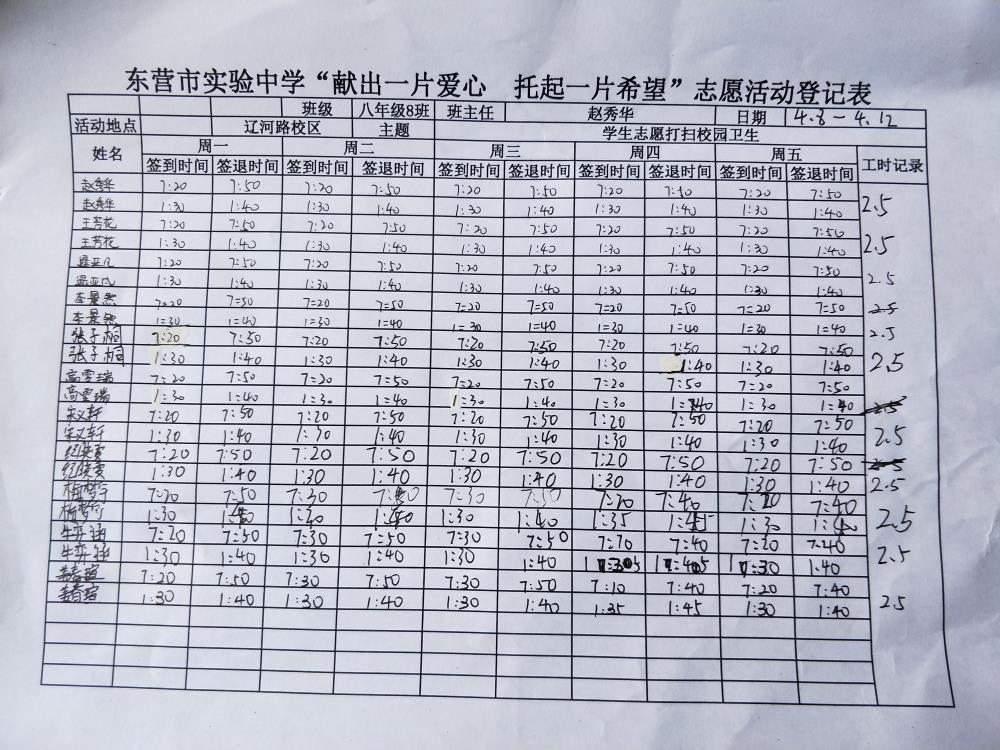 东营市实验中学“献出一片爱心 托起一片希望”志愿活动登记表
班级 八年级8班 班主任 赵秀华 日期 4.8-4.12
活动地点 辽河路校区 主题 学生志愿打扫校园卫生
姓名 周一 周二 周三 周四 周五 工时记录
签到时间 签退时间 签到时间 签退时间 签到时间 签退时间 签到时间 签退时间 签到时间 签退时间
赵秀华 7:20 7:50 7:20 7:50 7:20 7:50 7:20 7:50 7:20 7:50
赵秀华 1:30 1:40 1:30 1:40 1:30 1:40 1:30 1:40 1:30 1:40 2.5
王芳花 7:20 7:50 7:20 7:50 7:20 7:50 7:20 7:50 7:20 7:50
王芳花 1:30 1:40 1:30 1:40 1:30 1:40 1:30 1:40 1:30 1:40 2.5
7:20 7:50 7:20 7:50 7:20 7:50 7:20 7:50 7:20 7:50
1:30 1:40 1:30 1:40 1:30 1:40 1:30 1:40 1:30 1:40 2.5
李景然 7=20 7=50 7=20 7=50 7=20 7=50 7=20 7=50 7=20 7=50 2.5
李景然 1=30 1=40 1=30 1=40 1=30 1=40 1=30 1=40 1=30 1=40 2.5
张子桐 7:20 7:50 7:20 7:50 7:20 7:50 7:20 7:50 7:20 7:50
张子桐 1:30 1:40 1:30 1:40 1:30 1:40 1:30 1:40 1:30 1:40 2.5
高雪瑞 7=20 7=50 7=20 7=50 7=20 7=50 7=20 7=50 7=20 7=50
高雪瑞 1=30 1=40 1=30 1=40 1=30 1=40 1=30 1=40 1=30 1=40 2.5
宋义轩 7:20 7:50 7:20 7:50 7:20 7:50 7:20 7:50 7:20 7:50
宋义轩 1:30 1:40 1:30 1:40 1:30 1:40 1:30 1:40 1:30 1:40 2.5
7:20 7:50 7:20 7:50 7:20 7:50 7:20 7:50 7:20 7:50 2.5
1:30 1:40 1:30 1:40 1:30 1:40 1:30 1:40 1:30 1:40 2.5
7:20 7:50 7:30 7:50 7:30 7:50 7:20 7:40 7:20 7:40
1:30 1:40 1:30 1:40 1:30 1:40 1:35 1:45 1:30 1:40 2.5
牛奕涵 7:20 7:50 7:30 7:50 7:30 7:50 7:40 7:20 7:40
牛奕涵 1:30 1:40 1:30 1:40 1:30 1:40 1:30 1:40 2.5
7:20 7:50 7:30 7:50 7:30 7:50 7:10 7:40 7:20 7:40
1:30 1:40 1:30 1:40 1:30 1:40 1:35 1:45 1:30 1:40 2.5